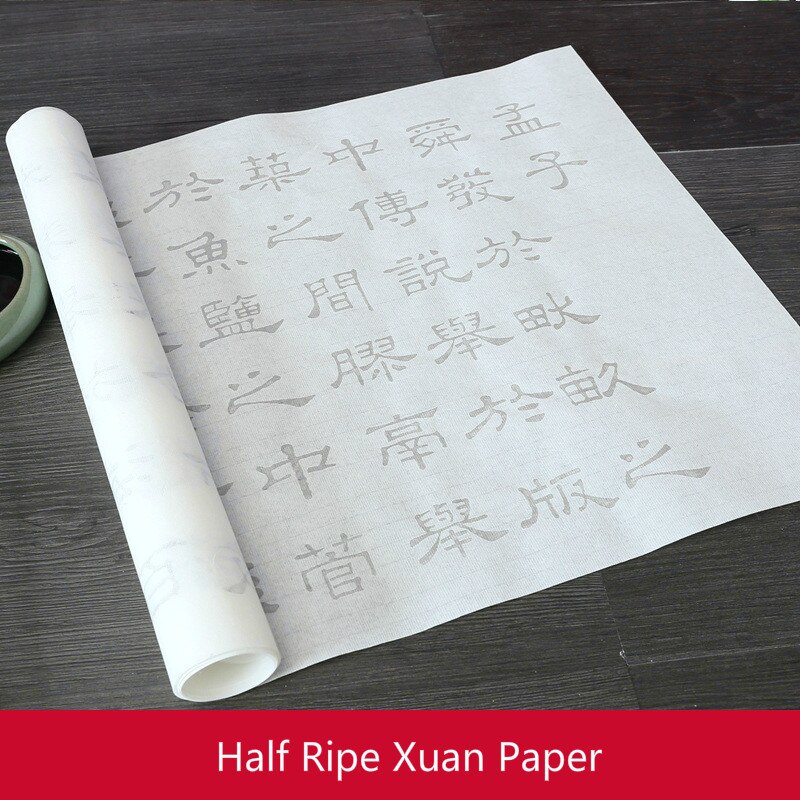 孟子
舜發於畎畝之
中傅說舉於版
築之間膠鬲舉
於魚鹽之中管
Half Ripe Xuan Paper